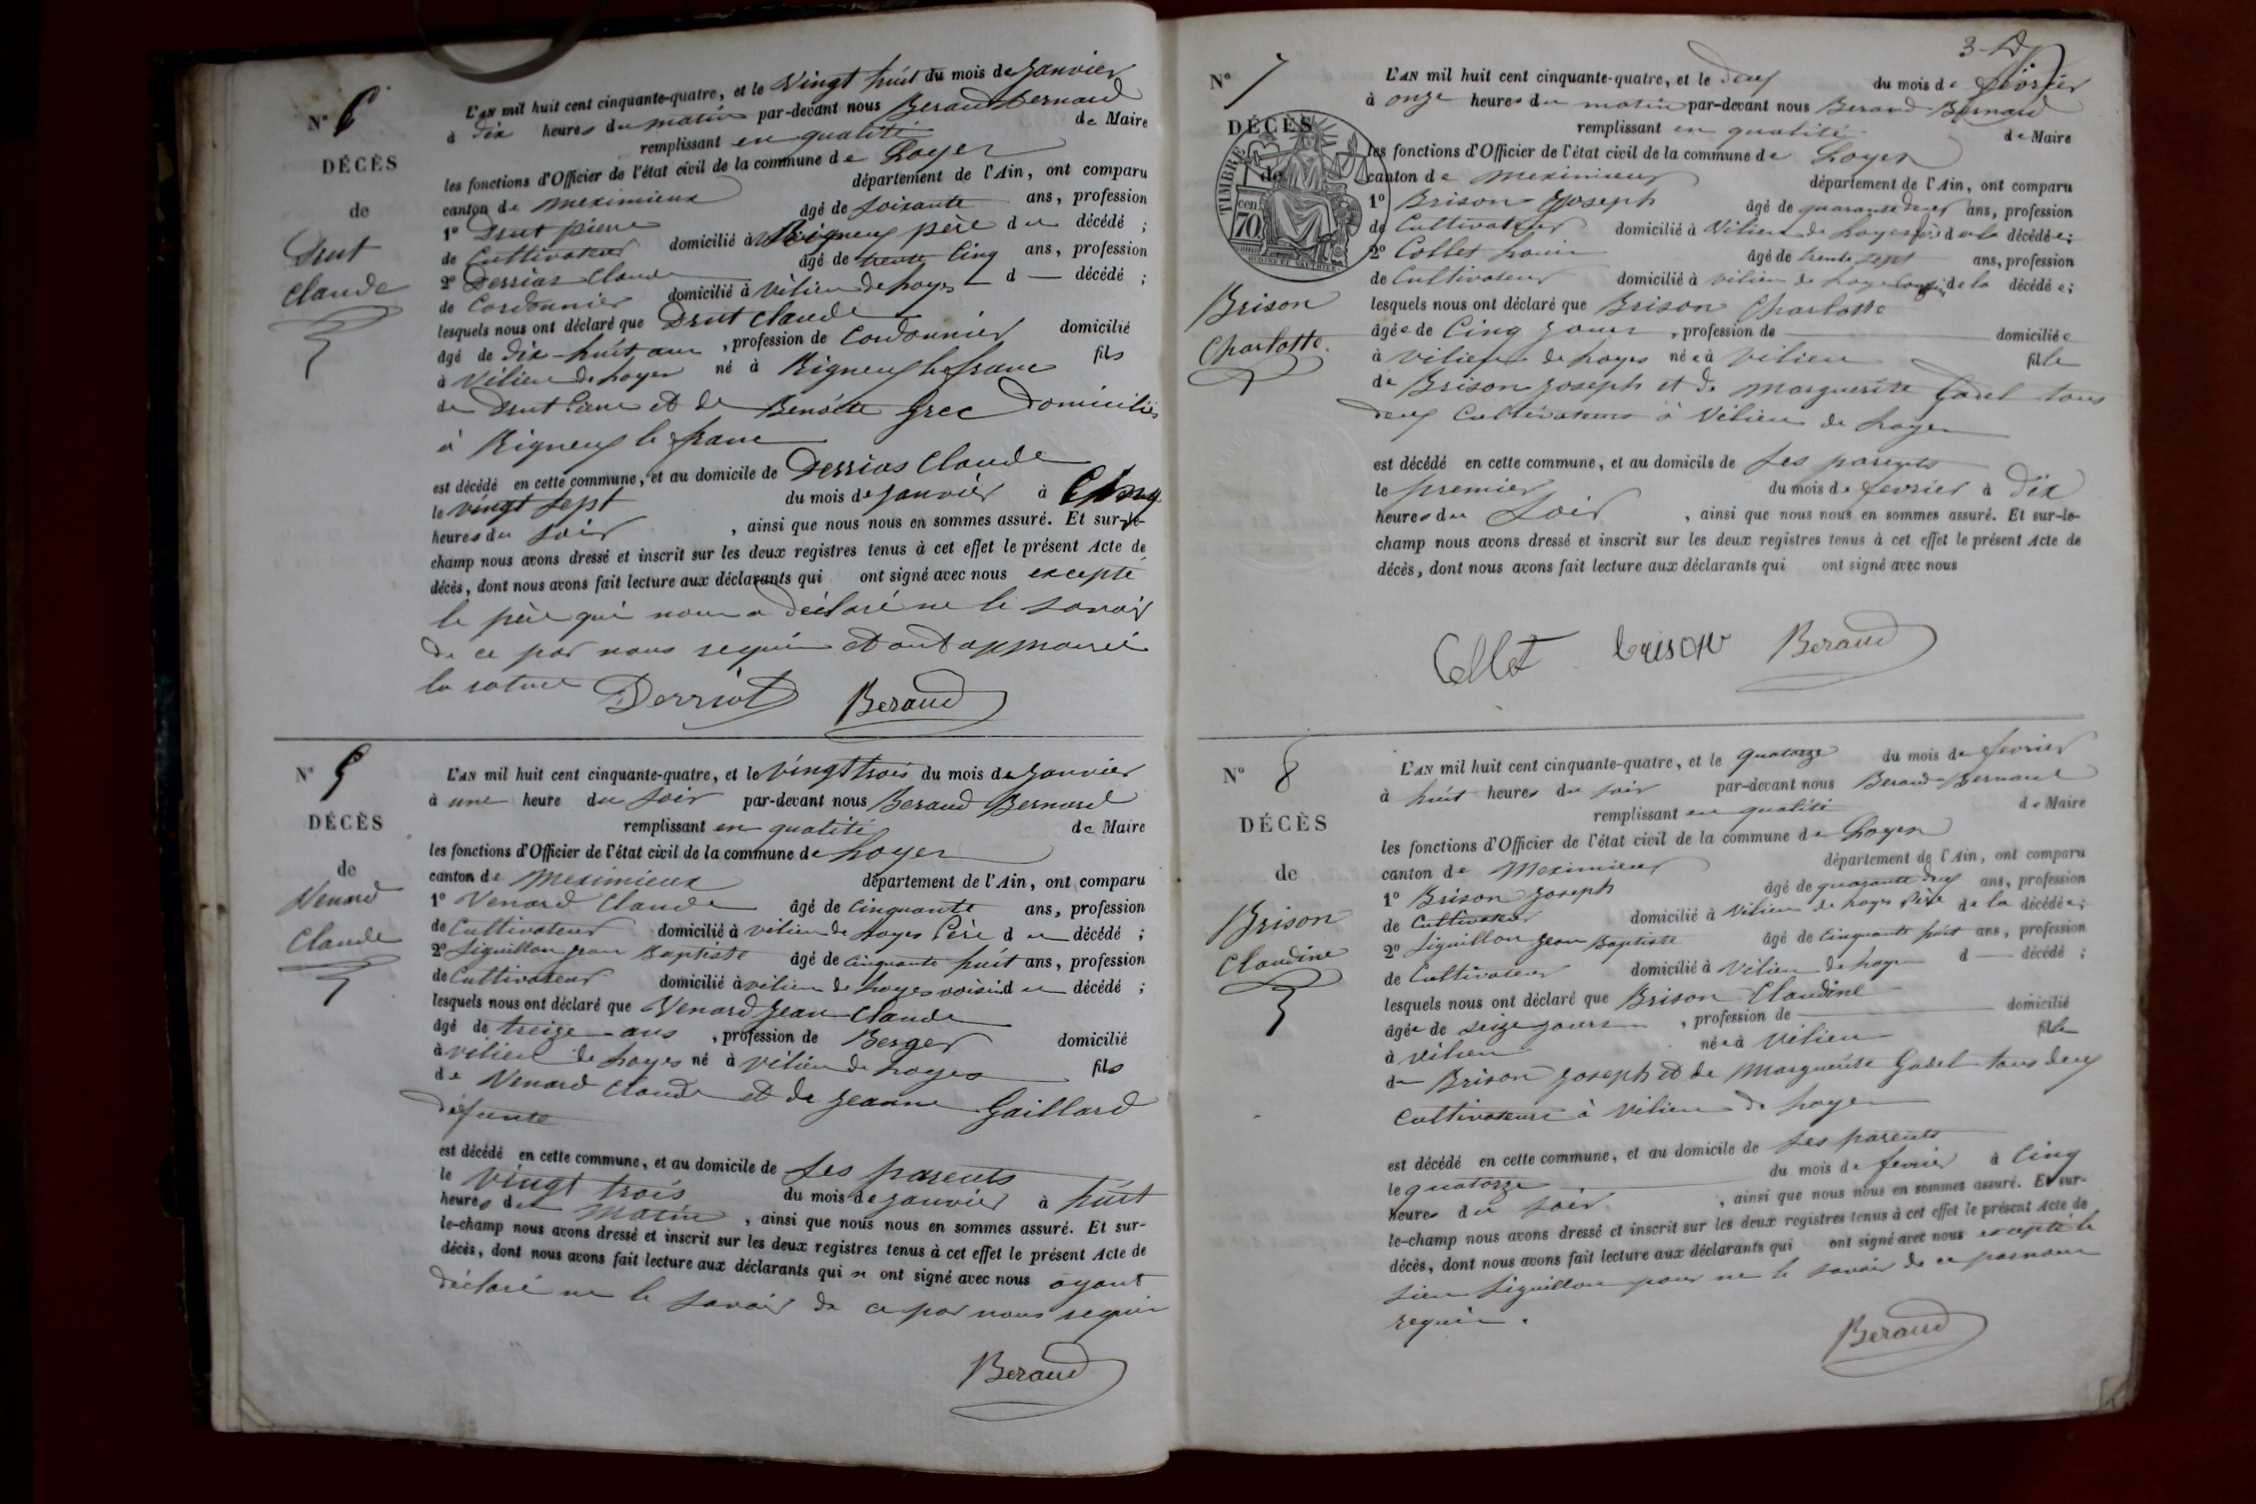 N° 6
DÉCÈS
de
Drut
Claude
L'AN mil huit cent cinquante-quatre, et le Vingt huit du mois de Janvier
à dix heures du matin par-devant nous Beraud Bernard
remplissant en qualité de Maire
les fonctions d'Officier de l'état civil de la commune de Loyes
canton de Meximieux département de l'Ain, ont comparu
1° Drut pierre âgé de soixante ans, profession
de Cultivateur domicilié à Rigneux père du décédé ;
2° Derrias Claude âgé de trente Cinq ans, profession
de Cordonnier domicilié à Vilieu de Loyes d — décédé ;
lesquels nous ont déclaré que Drut Claude
âgé de dix-huit ans , profession de Cordonnier domicilié
à Vilieu de Loyes né à Rigneux le franc fils
de Drut Pierre et de Benoite Grec domiciliés
à Rigneux le franc
est décédé en cette commune, et au domicile de Derrias Claude
le vingt sept du mois de Janvier à Cinq
heures du soir , ainsi que nous nous en sommes assuré. Et sur-le-
champ nous avons dressé et inscrit sur les deux registres tenus à cet effet le présent Acte de
décès, dont nous avons fait lecture aux déclarants qui ont signé avec nous excepté
le père qui nous a déclaré ne le savoir
de ce par nous requis et ont approuvé
la rature Derriot Beraud
N° 5
DÉCÈS
de
Venard
Claude
L'AN mil huit cent cinquante-quatre, et le vingt trois du mois de Janvier
à une heure du soir par-devant nous Beraud Bernard
remplissant en qualité de Maire
les fonctions d'Officier de l'état civil de la commune de Loyes
canton de Meximieux département de l'Ain, ont comparu
1° Venard Claude âgé de cinquante ans, profession
de Cultivateur domicilié à vilieu de Loyes Père du décédé ;
2° Siguillon jean Baptiste âgé de cinquante huit ans, profession
de Cultivateur domicilié à vilieu de Loyes voisin du décédé ;
lesquels nous ont déclaré que Venard Jean Claude
âgé de treize ans , profession de Berger domicilié
à vilieu de Loyes né à vilieu de Loyes fils
de Venard Claude et de Jeanne Gaillard
défunte
est décédé en cette commune, et au domicile de ses parents
le vingt trois du mois de Janvier à huit
heures du Matin , ainsi que nous nous en sommes assuré. Et sur-
le-champ nous avons dressé et inscrit sur les deux registres tenus à cet effet le présent Acte de
décès, dont nous avons fait lecture aux déclarants qui n ont signé avec nous ayant
déclaré ne le savoir de ce par nous requis
Beraud
3
N° 7
DÉCÈS
de
TIMBRE
cen 70
Brison
Charlotte.
L'AN mil huit cent cinquante-quatre, et le deux du mois de février
à onze heures du matin par-devant nous Beraud Bernard
remplissant en qualité de Maire
les fonctions d'Officier de l'état civil de la commune de Loyes
canton de Meximieux département de l'Ain, ont comparu
1° Brison Joseph âgé de quarante deux ans, profession
de Cultivateur domicilié à Vilieu de Loyes père de la décédée ;
2° Collet Louis âgé de trente sept ans, profession
de Cultivateur domicilié à vilieu de Loyes cousin de la décédée ;
lesquels nous ont déclaré que Brison Charlotte
âgée de Cinq jours , profession de domiciliée
à vilieu de Loyes née à vilieu fille
de Brison Joseph et de Marguerite Gadel tous
deux Cultivateurs à Vilieu de Loyes
est décédé en cette commune, et au domicile de ses parents
le premier du mois de février à dix
heures du soir , ainsi que nous nous en sommes assuré. Et sur-le-
champ nous avons dressé et inscrit sur les deux registres tenus à cet effet le présent Acte de
décès, dont nous avons fait lecture aux déclarants qui ont signé avec nous
Collet brison Beraud
N° 8
DÉCÈS
de
Brison
Claudine
L'AN mil huit cent cinquante-quatre, et le quatorze du mois de février
à huit heures du soir par-devant nous Beraud Bernard
remplissant en qualité de Maire
les fonctions d'Officier de l'état civil de la commune de Loyes
canton de Meximieux département de l'Ain, ont comparu
1° Brison Joseph âgé de quarante deux ans, profession
de Cultivateur domicilié à Vilieu de Loyes Père de la décédée ;
2° Siguillon Jean Baptiste âgé de cinquante huit ans, profession
de Cultivateur domicilié à Vilieu de Loyes d — décédé ;
lesquels nous ont déclaré que Brison Claudine
âgée de seize jours , profession de domicilié
à vilieu née à Vilieu fille
de Brison Joseph et de Marguerite Gadel tous deux
Cultivateurs à Vilieu de Loyes
est décédé en cette commune, et au domicile de ses parents
le quatorze du mois de février à Cinq
heures du soir , ainsi que nous nous en sommes assuré. Et sur-
le-champ nous avons dressé et inscrit sur les deux registres tenus à cet effet le présent Acte de
décès, dont nous avons fait lecture aux déclarants qui ont signé avec nous excepté le
sieur Siguillon pour ne le savoir de ce par nous
requis.
Beraud